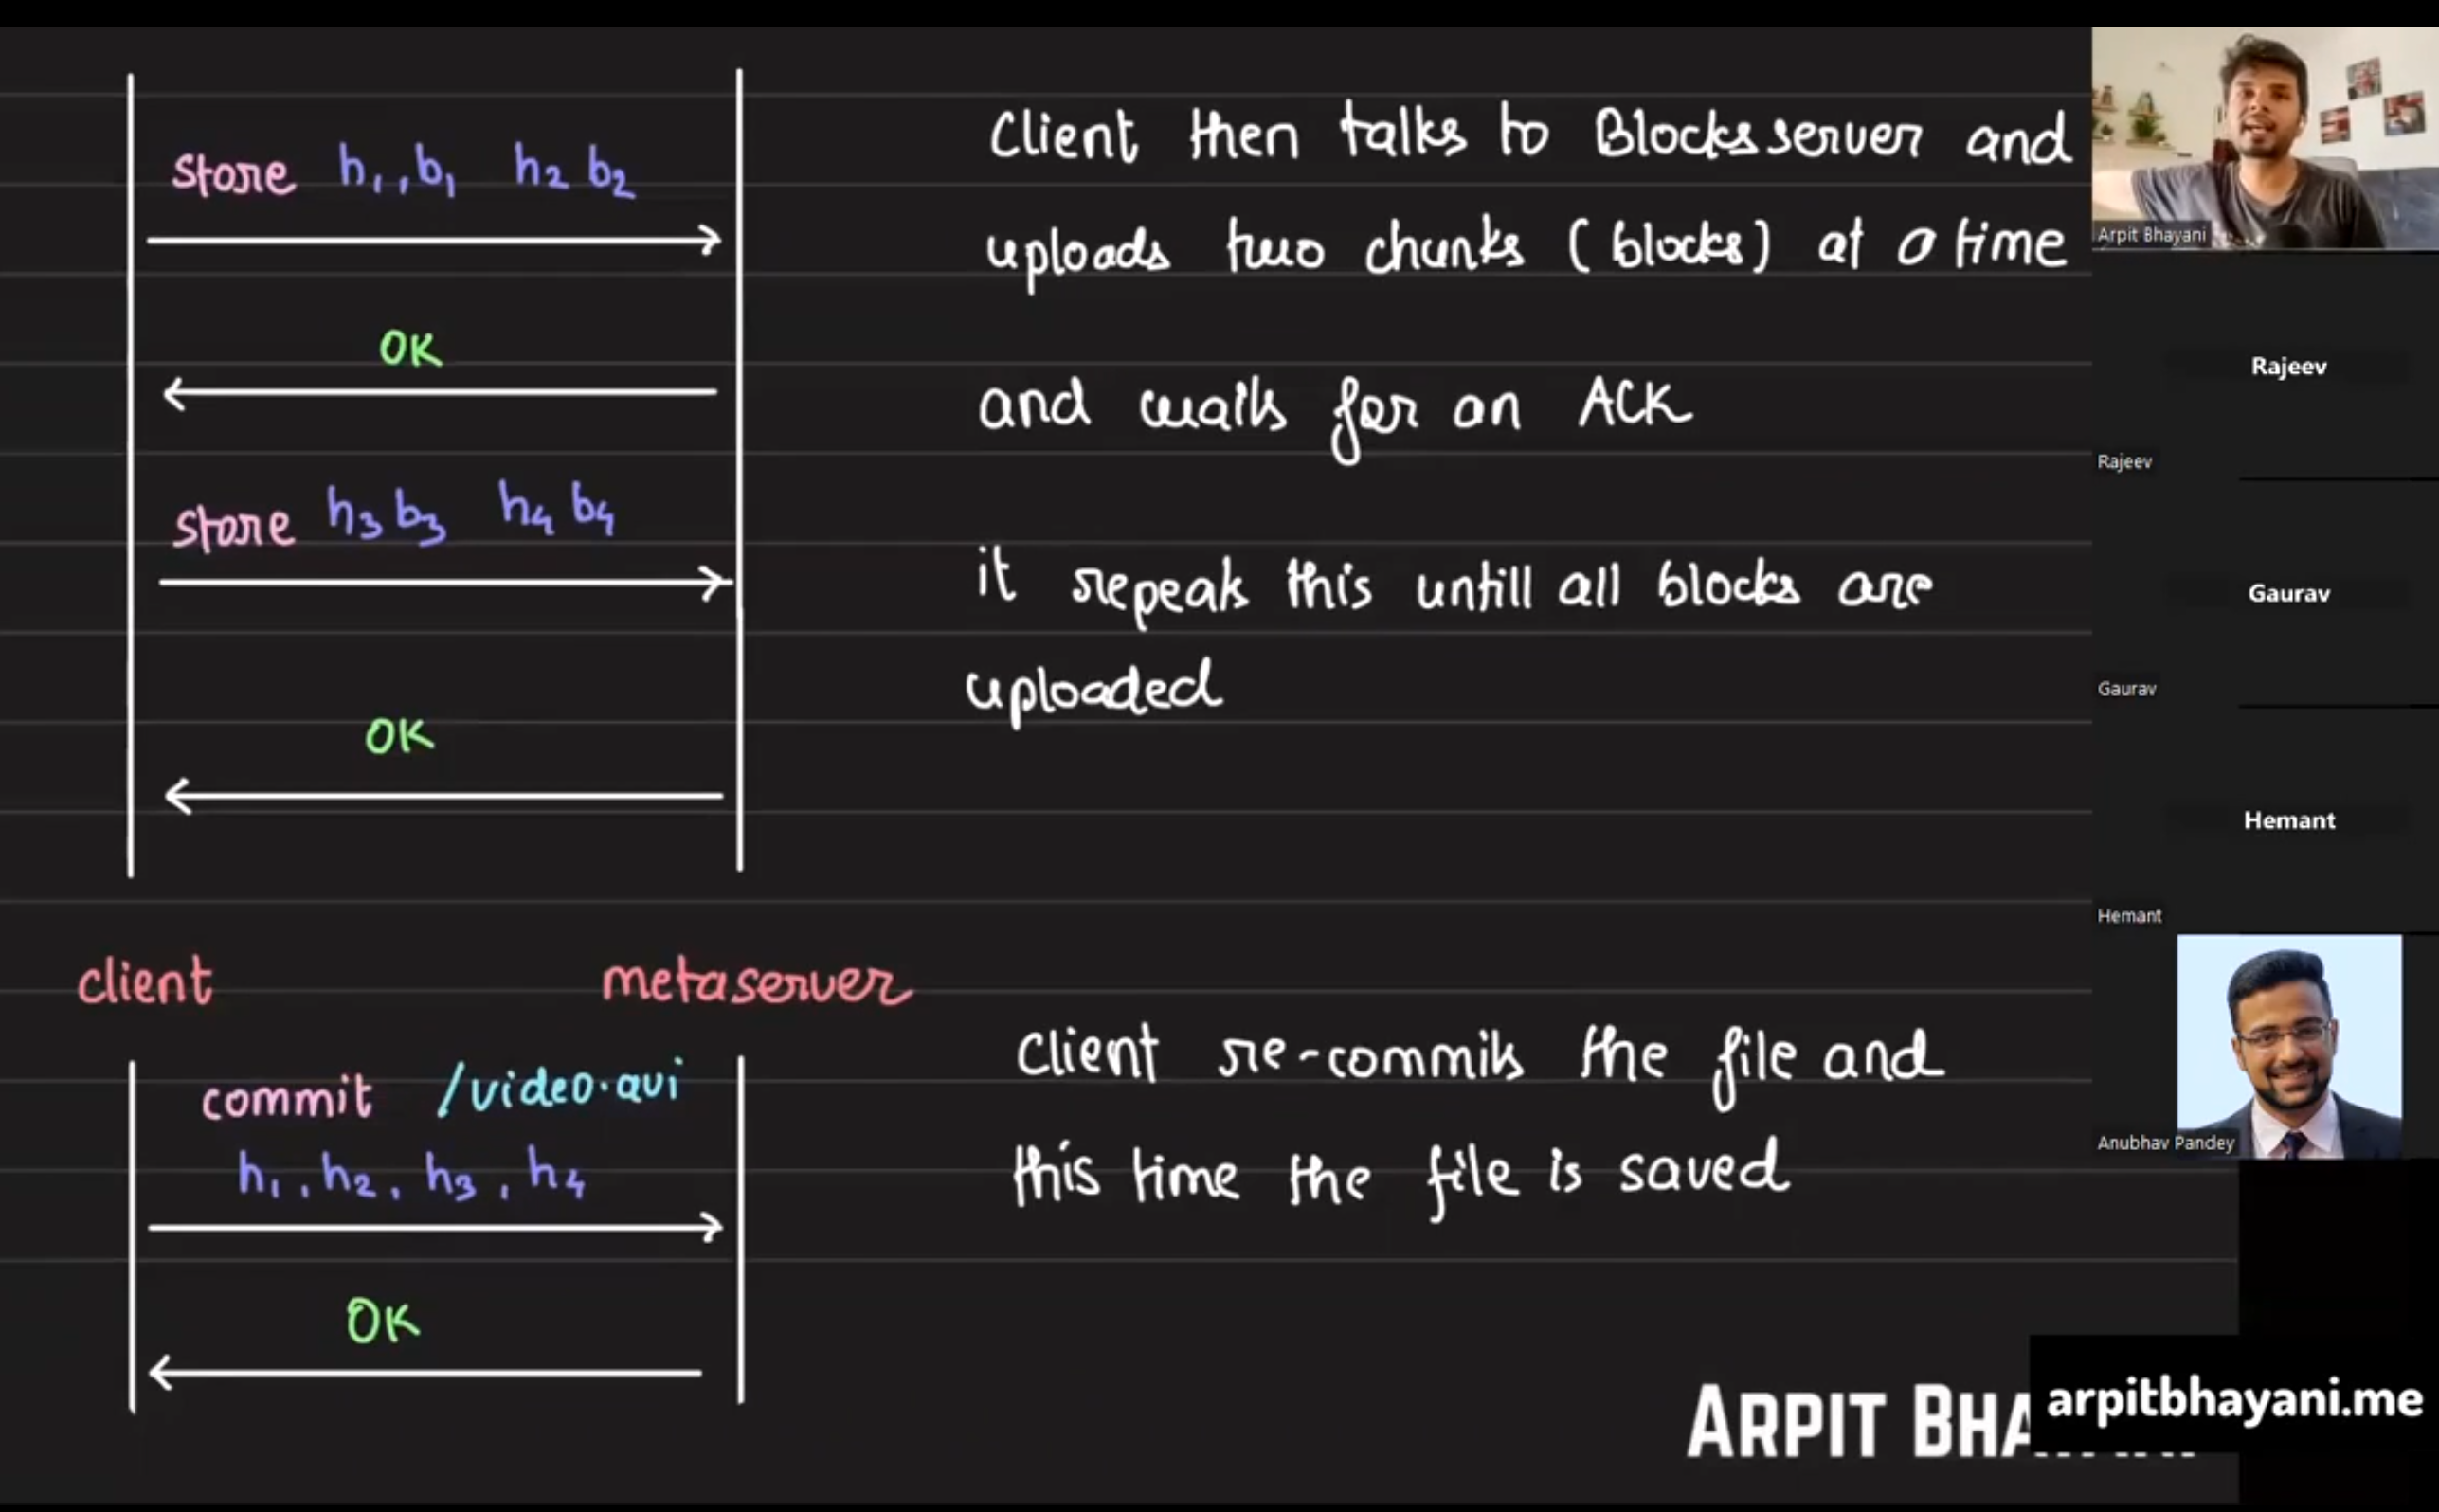 store h1,,b1 h2 b2
Client then talks to Blocks server and
uploads two chunks (blocks) at a time
OK
and waits for an ACK
store h3 b3 h4 b4
it repeats this untill all blocks are
uploaded
OK
client metaserver
commit /video.avi
h1, h2, h3, h4
Client re-commits the file and
this time the file is saved
OK
Arpit Bhayani
Rajeev
Rajeev
Gaurav
Gaurav
Hemant
Hemant
Anubhav Pandey
ARPIT
arpitbhayani.me